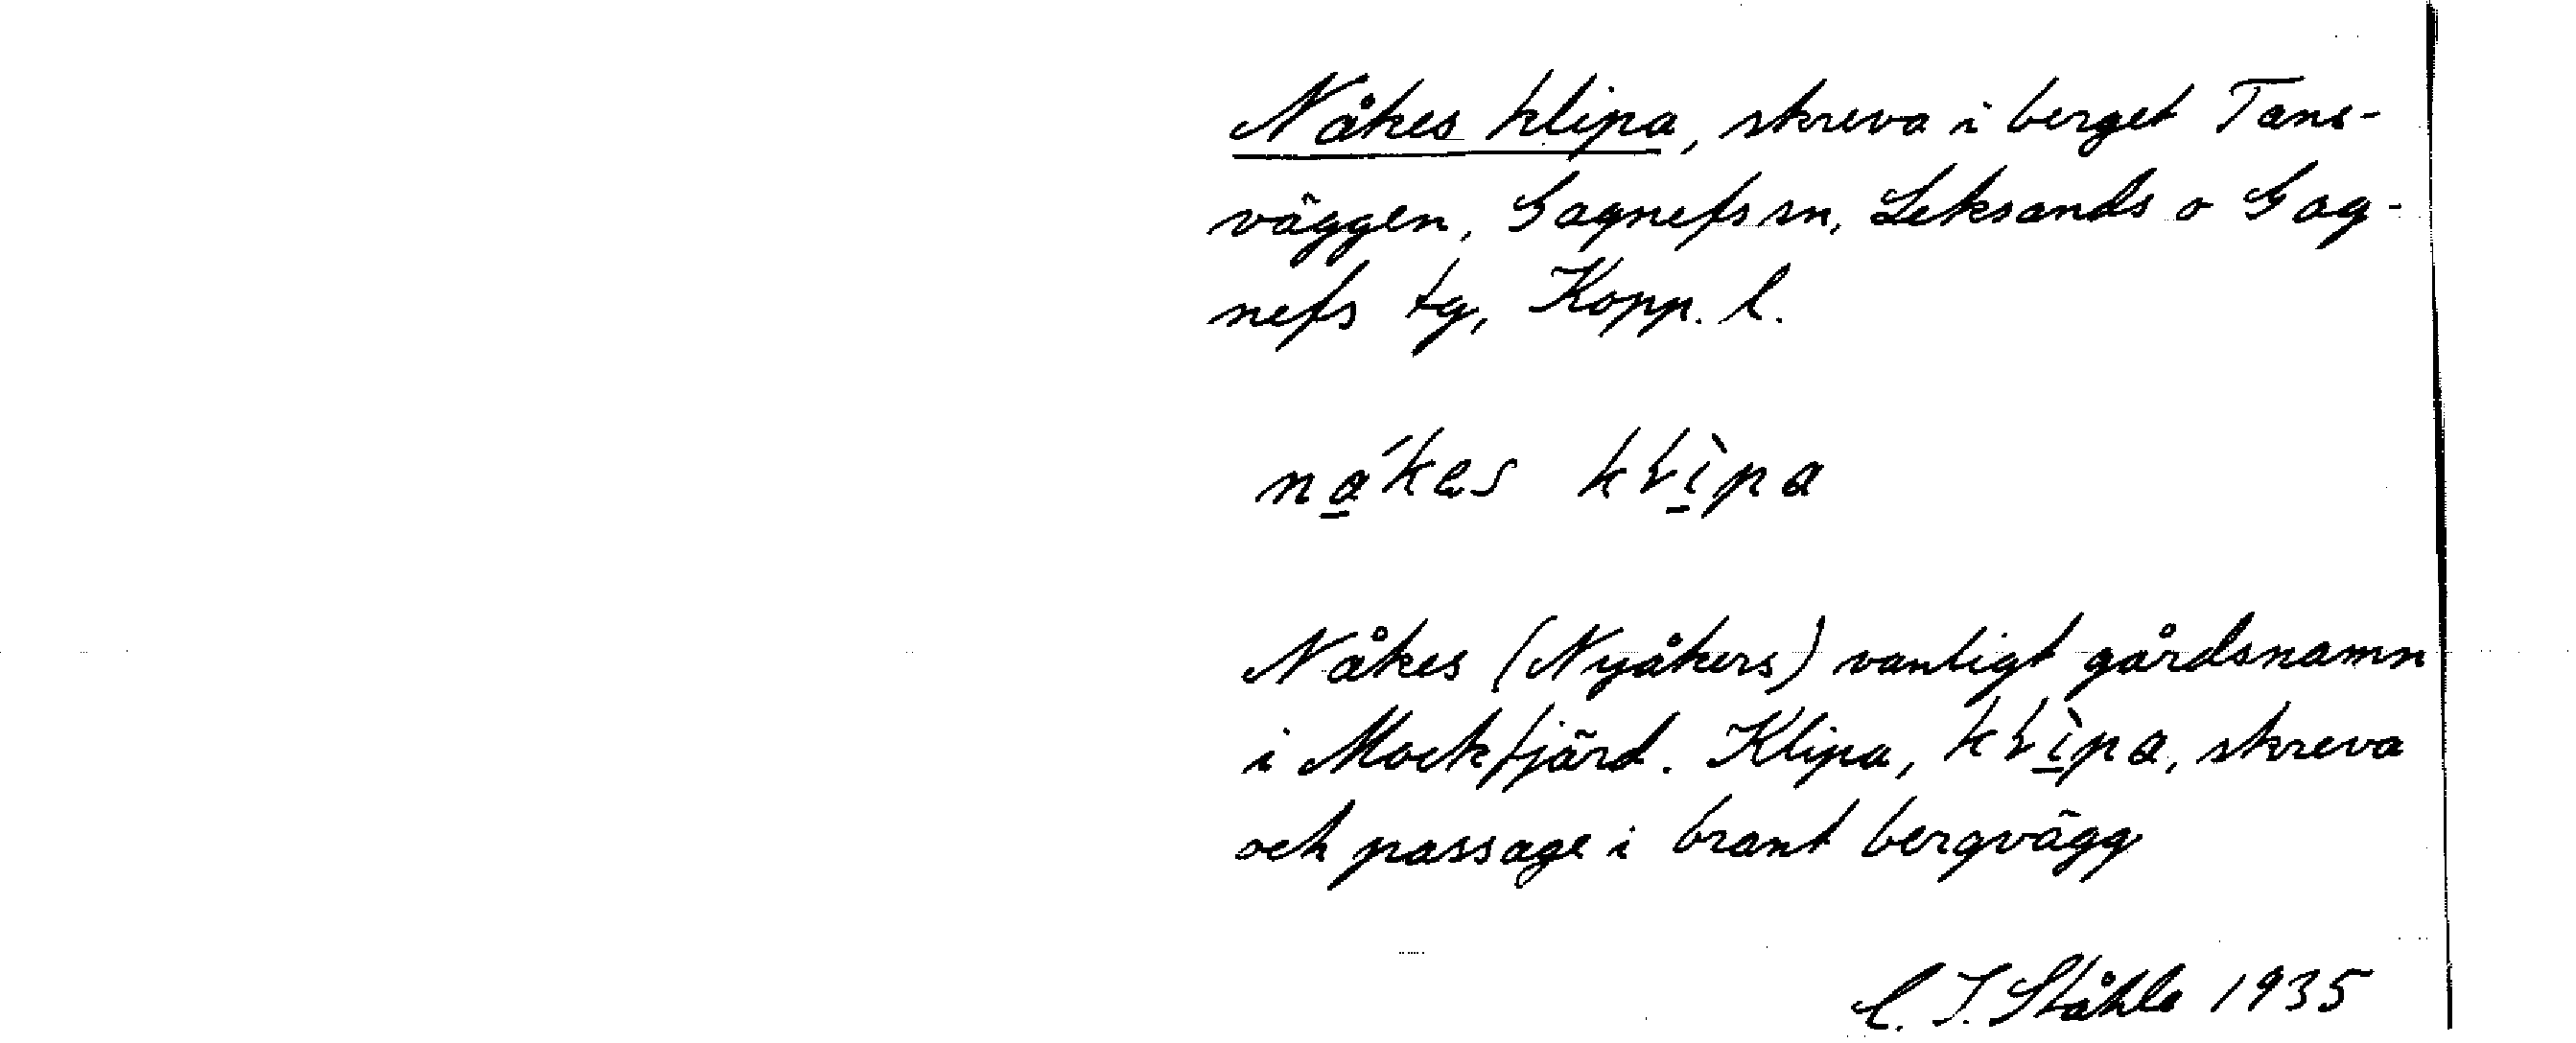 Nåkes klipa, skreva i berget Tans-
väggen, Gagnefs sn, Leksands o Gag-
nefs tg, Kopp. l.
nákes kľìpa
Nåkes (Nyåkers) vanligt gårdsnamn
i Mockfjärd. Klipa, skreva
och passage i brant bergvägg
C. I. Ståhle 1935